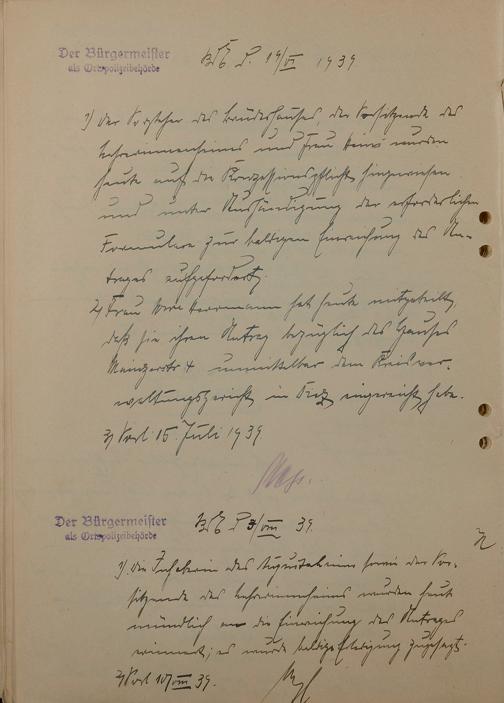 Der Bürgermeister
als Ortspolizeibehörde
d. 19/VI 1939
1) Der Vorsteher des Bundeshauses, die Vorsitzende des
Lehrerinnenheims und Frau wurden
heute auf die Konzessionspflicht hingewiesen
und unter Aushändigung der erforderlichen
Formulare zur baldigen Einreichung des An-
trages aufgefordert.
2) Frau Herrmann hat heute mitgeteilt,
daß sie ihren Antrag bezüglich des Hauses
Mainzerstr 4 unmittelbar dem Kreisver-
waltungsgericht in eingereicht habe.
3) Vorl. 15. Juli 1939.
Der Bürgermeister
als Ortspolizeibehörde
d. /VIII 39.
1) Die Inhaberin des sowie die Vor-
sitzende des Lehrerinnenheims wurden heute
mündlich an die Einreichung des Antrages
erinnert; es wurde baldige Erledigung zugesagt.
2) Vorl 10/VIII 39.